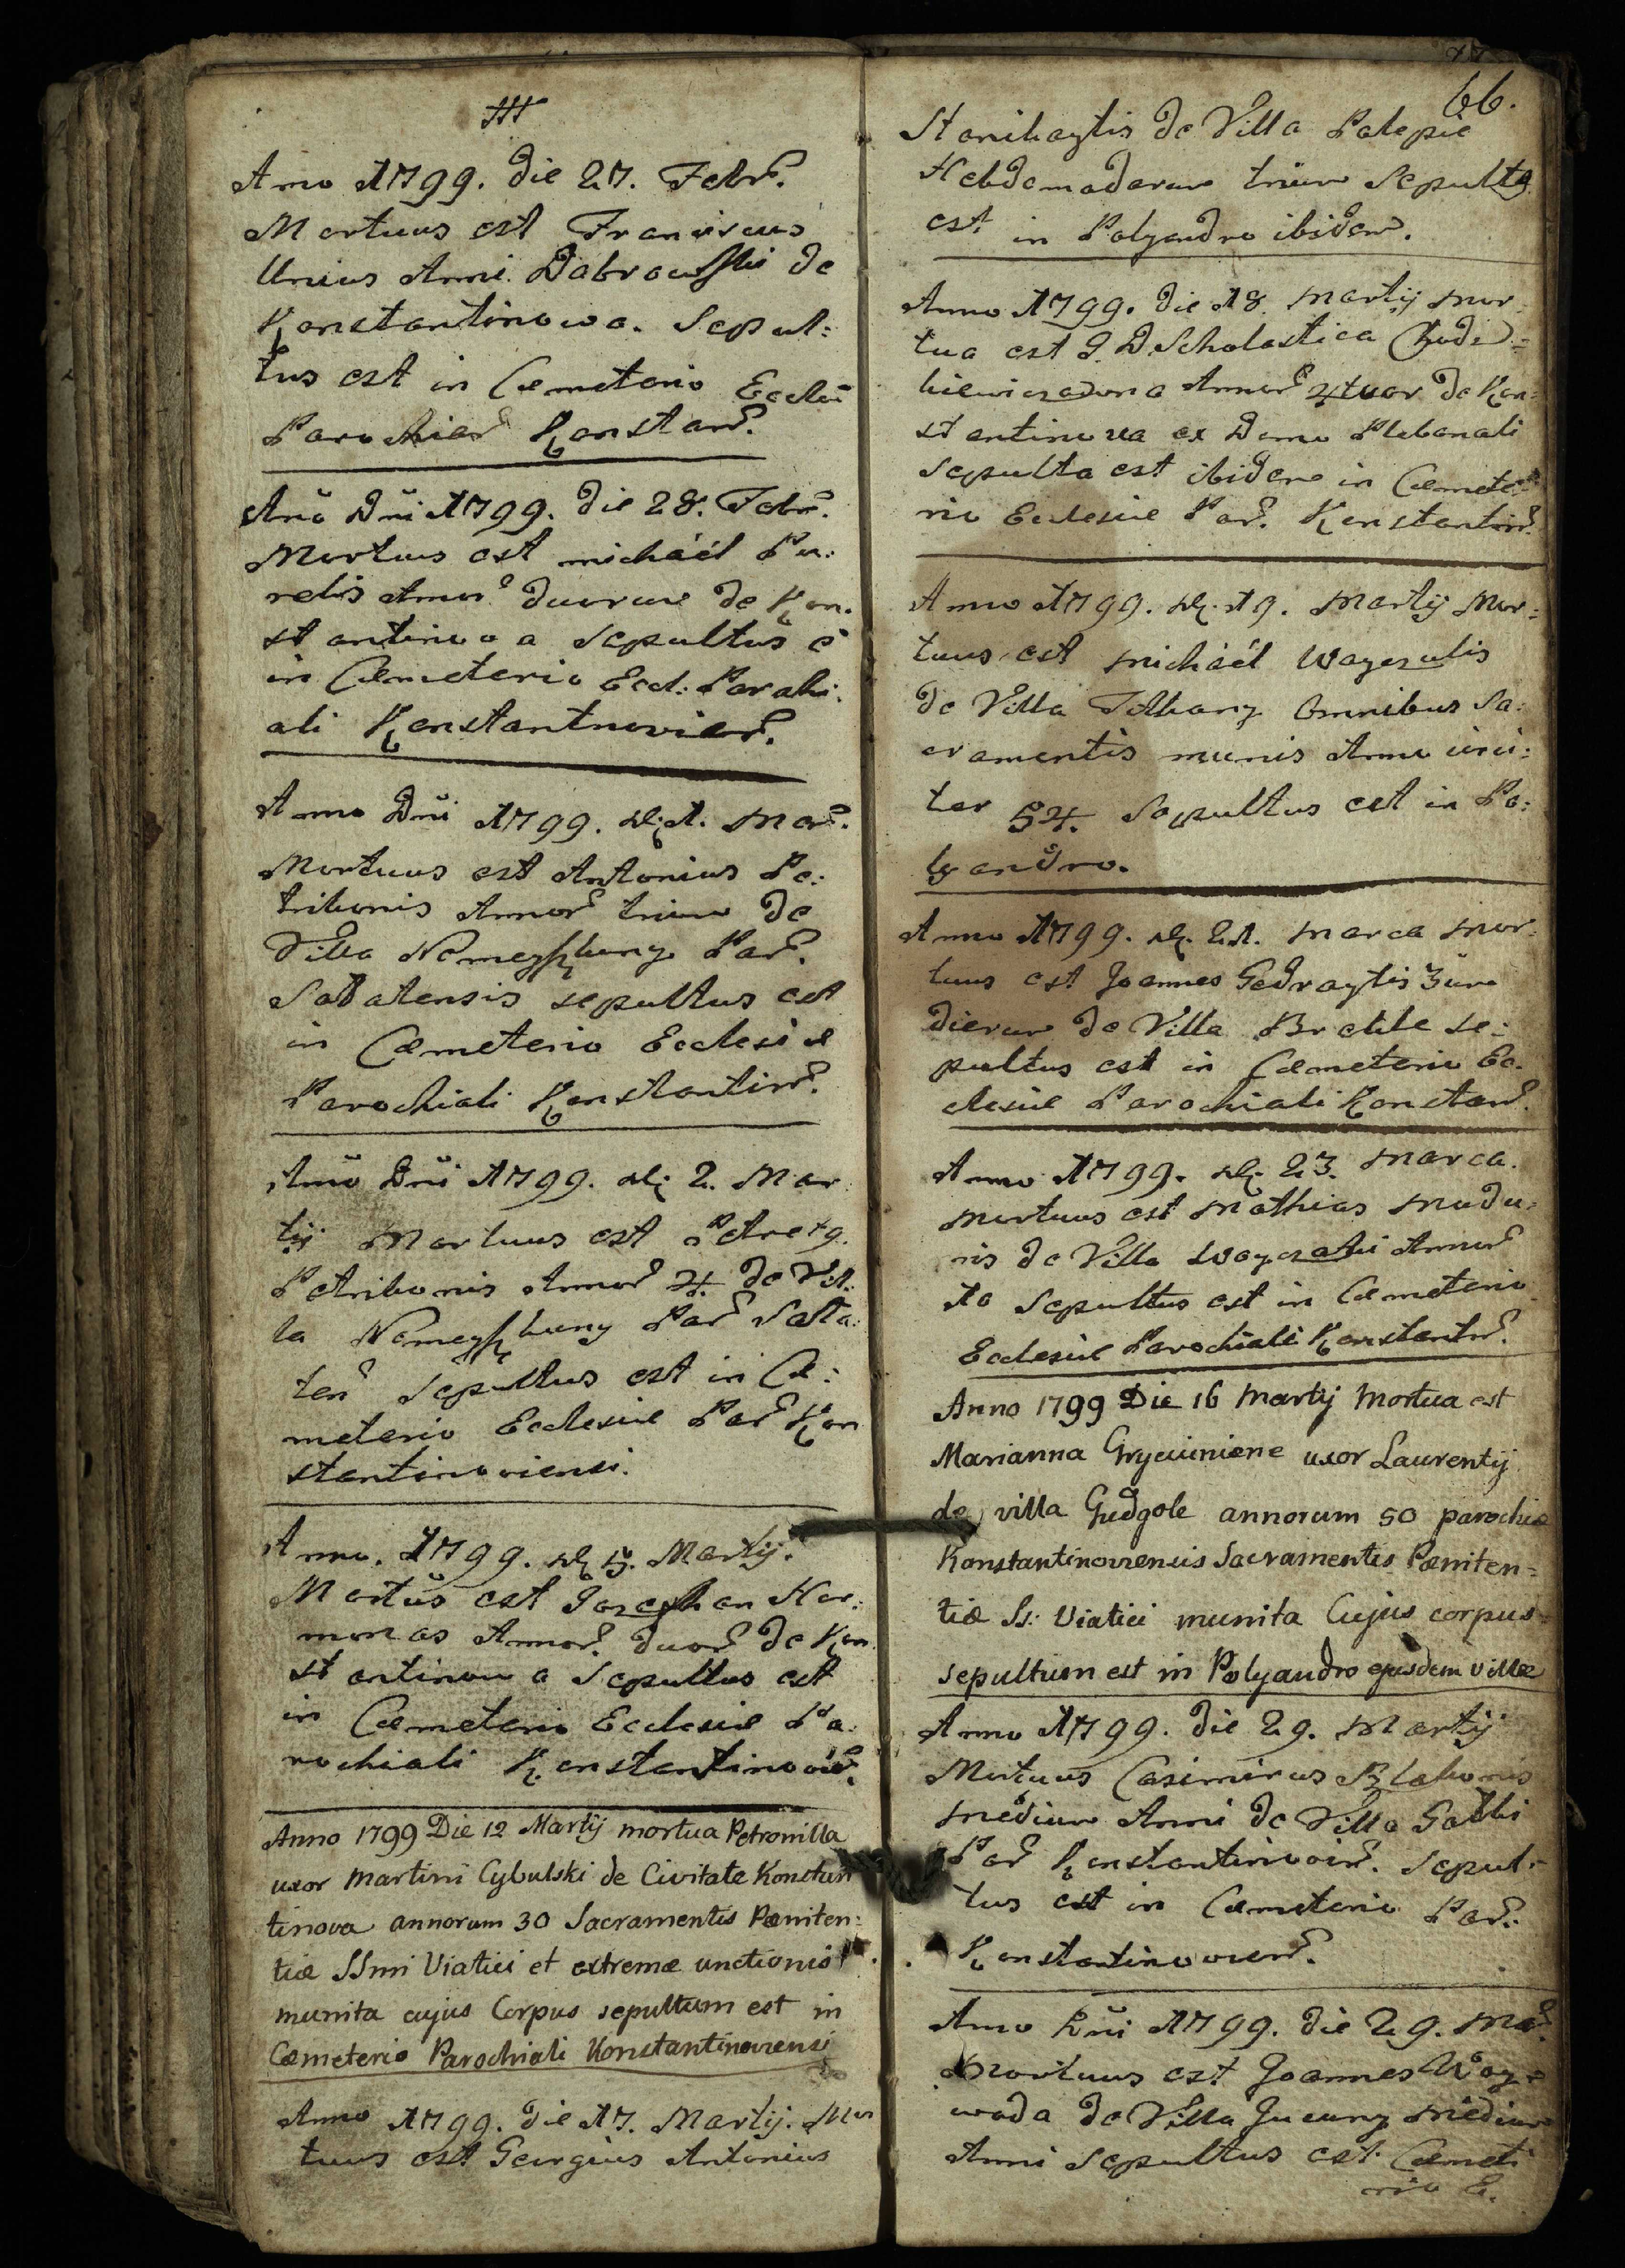 Anno 1799. Die 27. Febr.
Mortuus est Franciscus
Unius Anni Dabrowski de
Konstantinowa. Sepul:
tus est in Cæmeterio Eccłæ
Parochial Konstan.
Ano Dni 1799. Die 28. Febr.
Mortuus est michaël Pu:
relis Annor duorum de Kon.
stantinowa Sepultus e
in Cæmeterio Eccl: Parochi:
ali Konstantnovien.
Anno Dni 1799. d. 1. Mar.
Mortuus est Antonius Pe:
trikonis Annor trium de
Villa Par.
Satatensis sepultus est
in Cæmeterio Ecclesiæ
Parochiali Konstantin.
Ano Dni 1799. d. 2. Mar
tij Mortuus est
Petrikonis Annor 4. de Vil:
la Par Sata:
ten Sepultus est in Cæ:
meterio Ecclesiæ Par Kon
stantinoviensi.
Anno. 1799. d. 5. Martij.
Mortus est Har:
monas Annor. duor de Kon
stantinowa Sepultus est
in Cæmeterio Ecclesiæ Pa:
rochiali Konstantinovien.
Anno 1799 Die 12 Martij mortua Petronilla
uxor Martini Cybulski de Civitate Konstan
tinova annorum 30 Sacramentis Pæniten:
tiæ SSmi Viatici et extremæ unctionis
munita cujus Corpus sepultum est in
Cæmeterio Parochiali Konstantinoviensi
Anno 1799. die 17. Martij. Mor
tuus est Georgius Antonius
66.
de Villa
Hebdomadarum trium Sepultg
est in Polyandro ibidem.
Anno 1799. Die 18. Martij mor
tua est G. D. Scholastica
Annor 4tuor de Kon:
stantinova ex Domo Plebanali
Sepulta est ibidem in Cæmete:
rio Ecclesiæ Par. Konstantin.
Anno 1799. d. 19. Martij Mor:
tuus est Michaël
de Villa Omnibus Sa:
cramentis munis Anno circi:
ter 54. Sepultus est in Po:
lyandro.
Anno 1799. d. 21. Marca mor:
tuus est Joannes Gedraytis 3um
dierum de Villa se:
pultus est in Cæmeterio Ec:
clesiæ Parochiali Konstan.
Anno 1799. d. 23. Marca.
Mortuus est Mathias Madu:
nis de Villa Annor
10 Sepultus est in Cæmeterio
Ecclesiæ Parochiali Konstantn.
Anno 1799 Die 16 Martij Mortua est
Marianna Gryciuniene uxor Laurentij
de villa Gudgole annorum 50 parochiæ
Konstantinoviensis Sacramentis Pæniten=
tiæ Ss: Viatici munita Cujus corpus
sepultum est in Polyandro ejusdem villæ
Anno 1799. Die 29. Martij
Mortuus Casimirus
medium Anni de Villa
Par Konstantinovien. Sepul:
tus est in Cæmeterio Par:
Konstantinovien.
Anno Dni 1799. Die 29. Mar
Mortuus est Joannes Woy:
woda de Villa medium
Anni Sepultus est Cæmete
rio E.